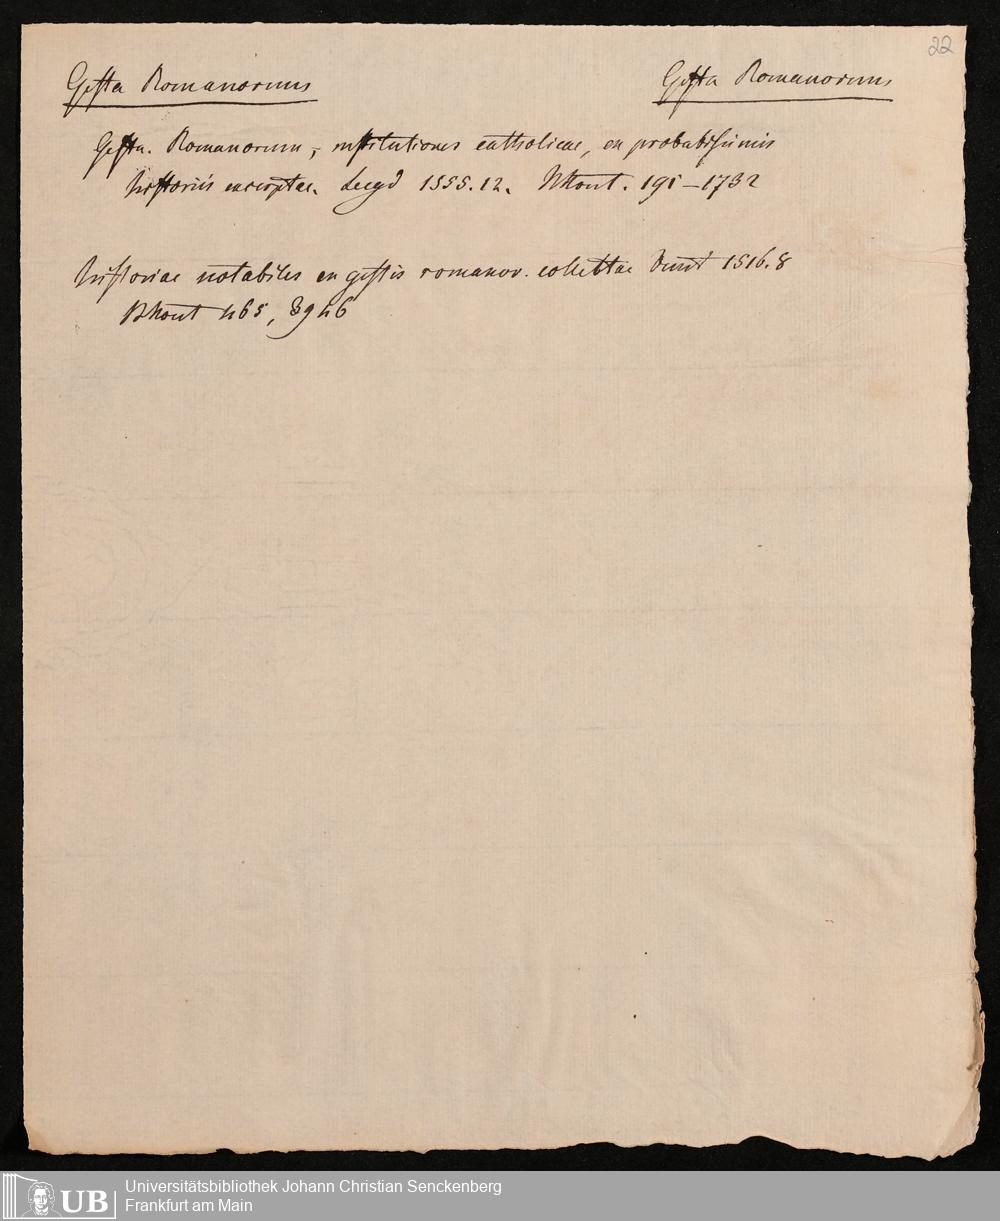 22
Gesta Romanorum Gesta Romanorum
Gesta. Romanorum, institutiones catholicae, ex probabissimis
historiis excerptae. Lugd 1555. 12. 191-1732
historiae notabiles ex gestis romanor. collectae 1516. 8
465, 8946
UB Universitätsbibliothek Johann Christian Senckenberg
Frankfurt am Main